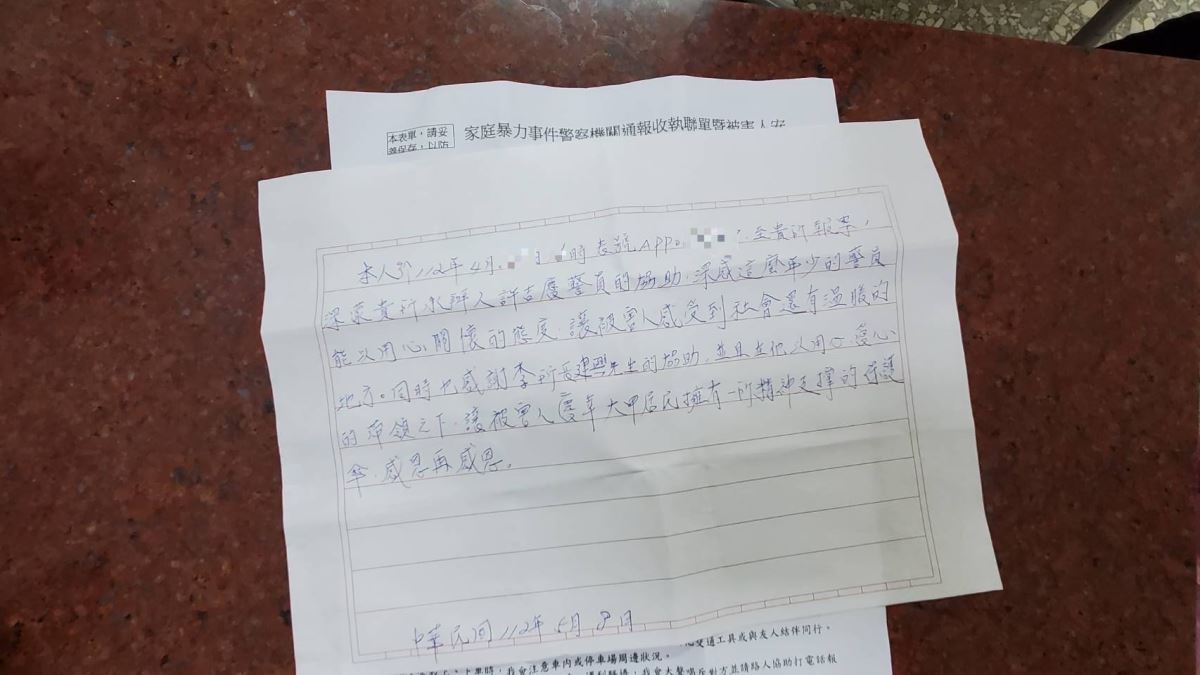 本表單，請妥
家庭暴力事件警察機關通報收執聯單暨被害人安
本人於112年4月 日 時表號APP 至貴所報案，
深蒙貴所承辦人許吉慶警員的協助，深感這麼年少的警員
能以用心、關懷的態度，讓被害人感受到社會還有溫暖的
地方。同時也感謝李所長建興先生的協助，並且在他以用心、愛心
的帶領之下，讓被害人慶幸大甲居民擁有一所精神支撐的保護
傘，感恩再感恩。
中華民國112年5月8日
交通工具或與友人結伴同行。
上車時，我會注意車內或停車場周邊狀況。
我會大聲喝斥對方並請路人協助打電話報